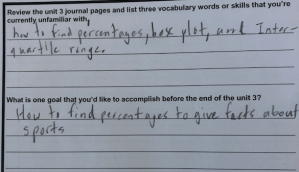 Review the unit 3 journal pages and list three vocabulary words or skills that you're
currently unfamiliar with.
how to find percentages, box plot, and Inter-
quartile range.
What is one goal that you'd like to accomplish before the end of the unit 3?
How to find percentages to give facts about
sports